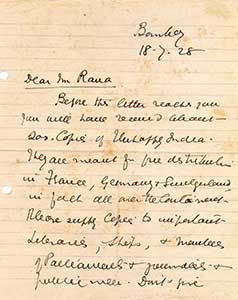 Bombay
18-7-28
Dear Mr Rana
Before this letter reaches you
you will have received about
200 Copies of Unhappy India.
They are meant for free distribution
in France, Germany & Switzerland
in fact all over the Continent.
Please supply Copies to important
Libraries, & Members
of Parliaments & journalists &
public men. Don't give